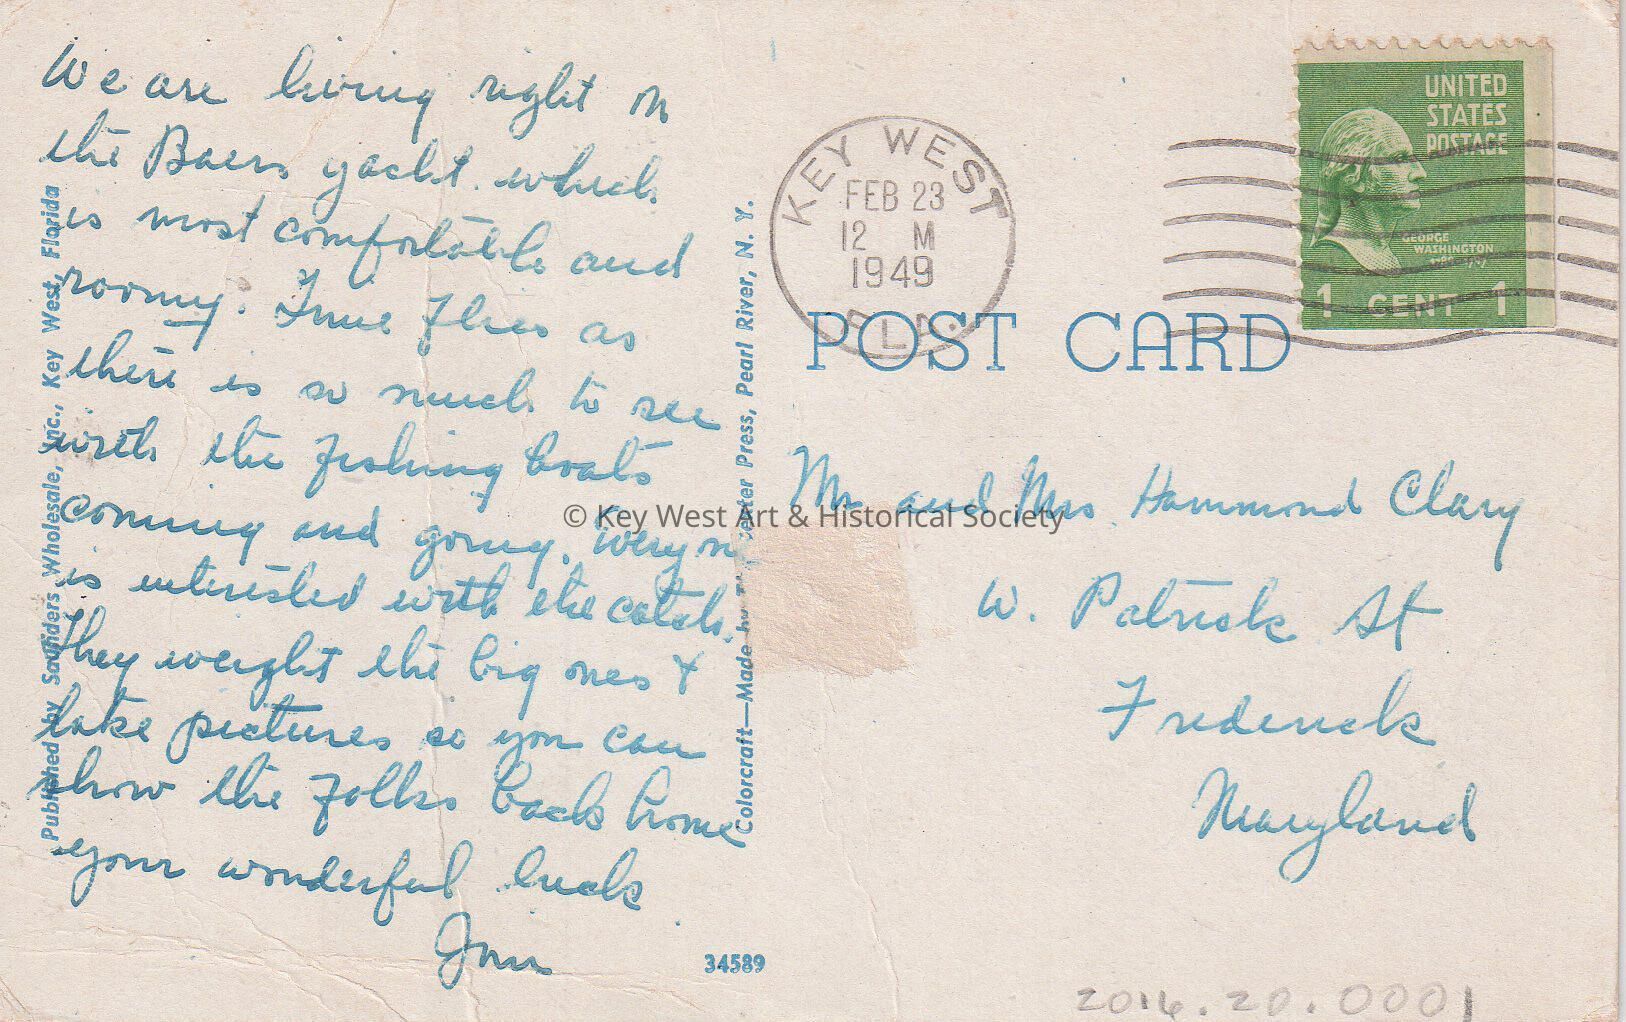 We are living right on
the Baers yacht which
is most comfortable and
roomy. Time flies as
there is so much to see
with the fishing boats
coming and going. Every
is interested with the catch.
They weight the big ones &
take pictures so you can
show the folks back home
your wonderful luck
Published by Saunders Wholesale, Inc., Key West, Florida
Colorcraft—Made by Press, Pearl River, N. Y.
34589
KEY WEST
FEB 23
12 M
1949
FLA.
UNITED
STATES
POSTAGE
GEORGE
WASHINGTON
1 CENT 1
POST CARD
Mr and Mrs. Hammond Clary
W. Patrick St
Frederick
Maryland
© Key West Art & Historical Society
2016.20.0001